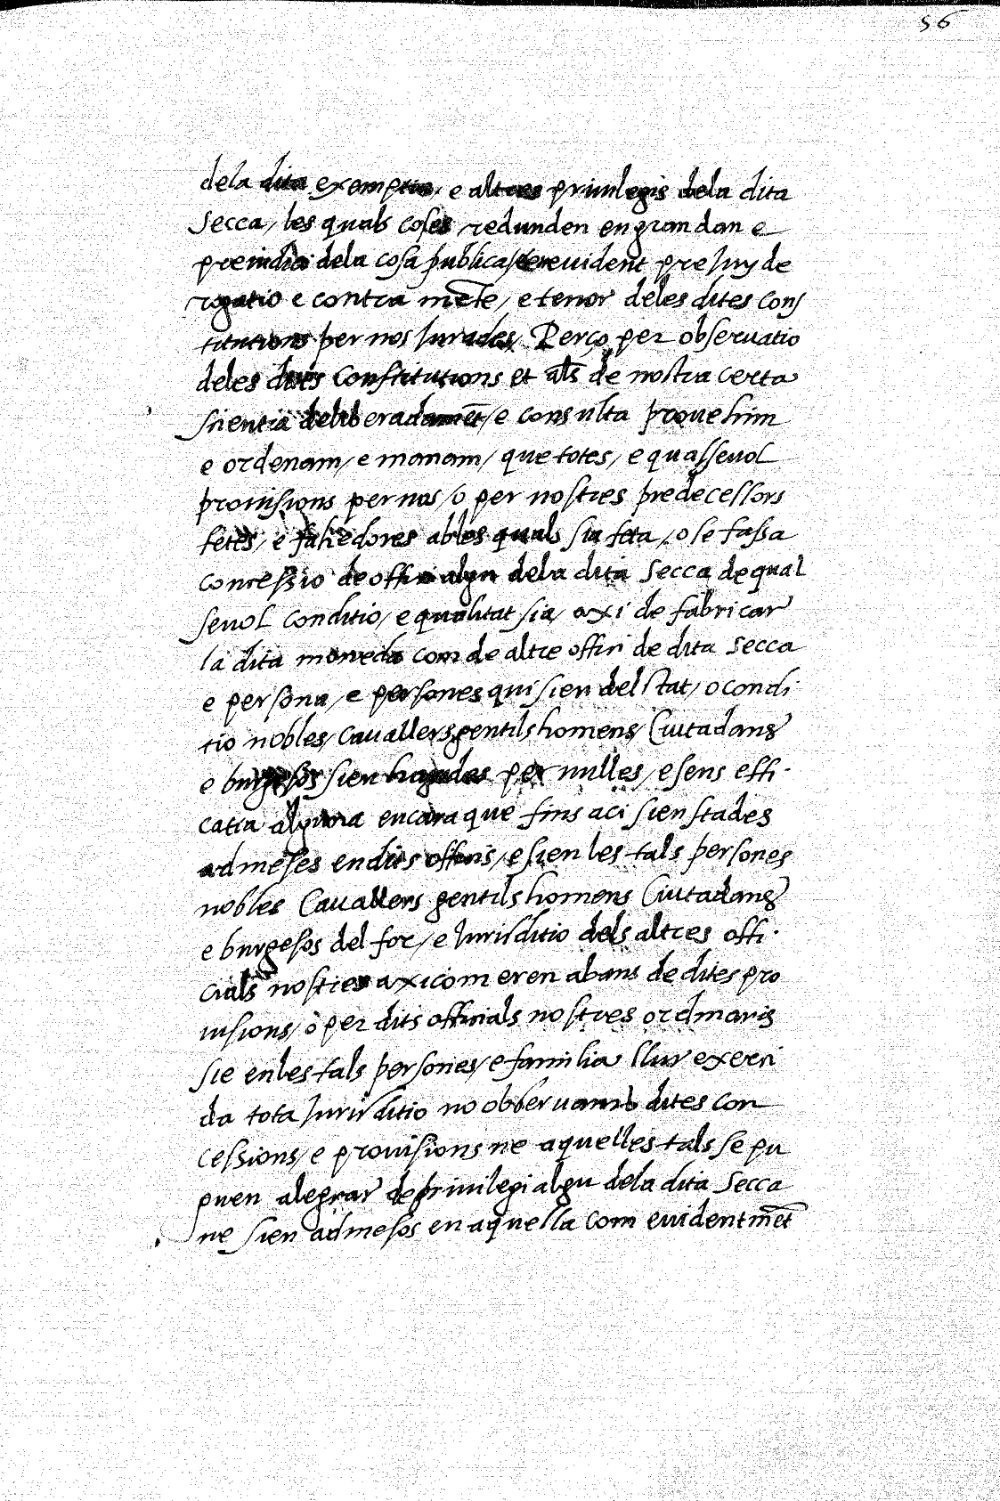 56
dela dita exemptio, e altres priuilegis dela dita
Secca, les quals coses redunden en gran dan e
preiudici dela cosa publica, e euident preIuy de
rogatio e contra mēte, e tenor deles dites cons
titutions per nos Iurades, Perço per obseruatio
deles dites Constitutions et als de nostra certa
scientia deliberadamēt, e consulta prouehim
e ordenam, e manam, que totes, e qualseuol
prouisions per nos, o per nostres predecessors
fetes, e fahedores ab les quals sia feta, o se fassa
concessio de offici algu dela dita Secca de qual
seuol conditio, e qualitat sia, axi de fabricar
la dita moneda com de altre offici de dita Secca
e persona, e persones qui sien del stat, o condi
tio nobles, Cauallers, gentils homens, Ciutadans
e burgesos sien hagudes per nulles, e sens effi-
catia alguna encara que fins aci sien stades
admeses en dits officis, e sien les tals persones
nobles Cauallers gentils homens Ciutadans
e burgesos del for, e Iurisditio dels altres offi-
cials nostres axi com eren abans de dites pro
uisions, o per dits officials nostres ordinaris
sie en les tals persones, e familia llur exerci
da tota Iurisditio no obseruant dites con
cessions, e prouisions ne aquelles tals se pu
puen alegrar de priuilegi algu dela dita Secca
ne sien admesos en aquella com euidentmēt